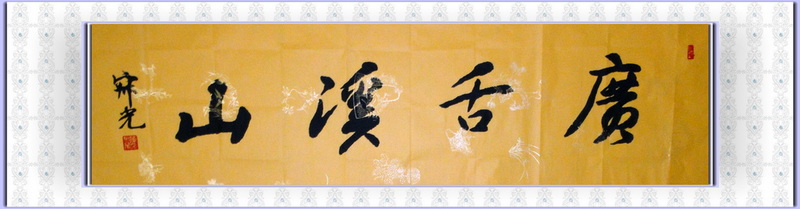 廣舌溪山
光